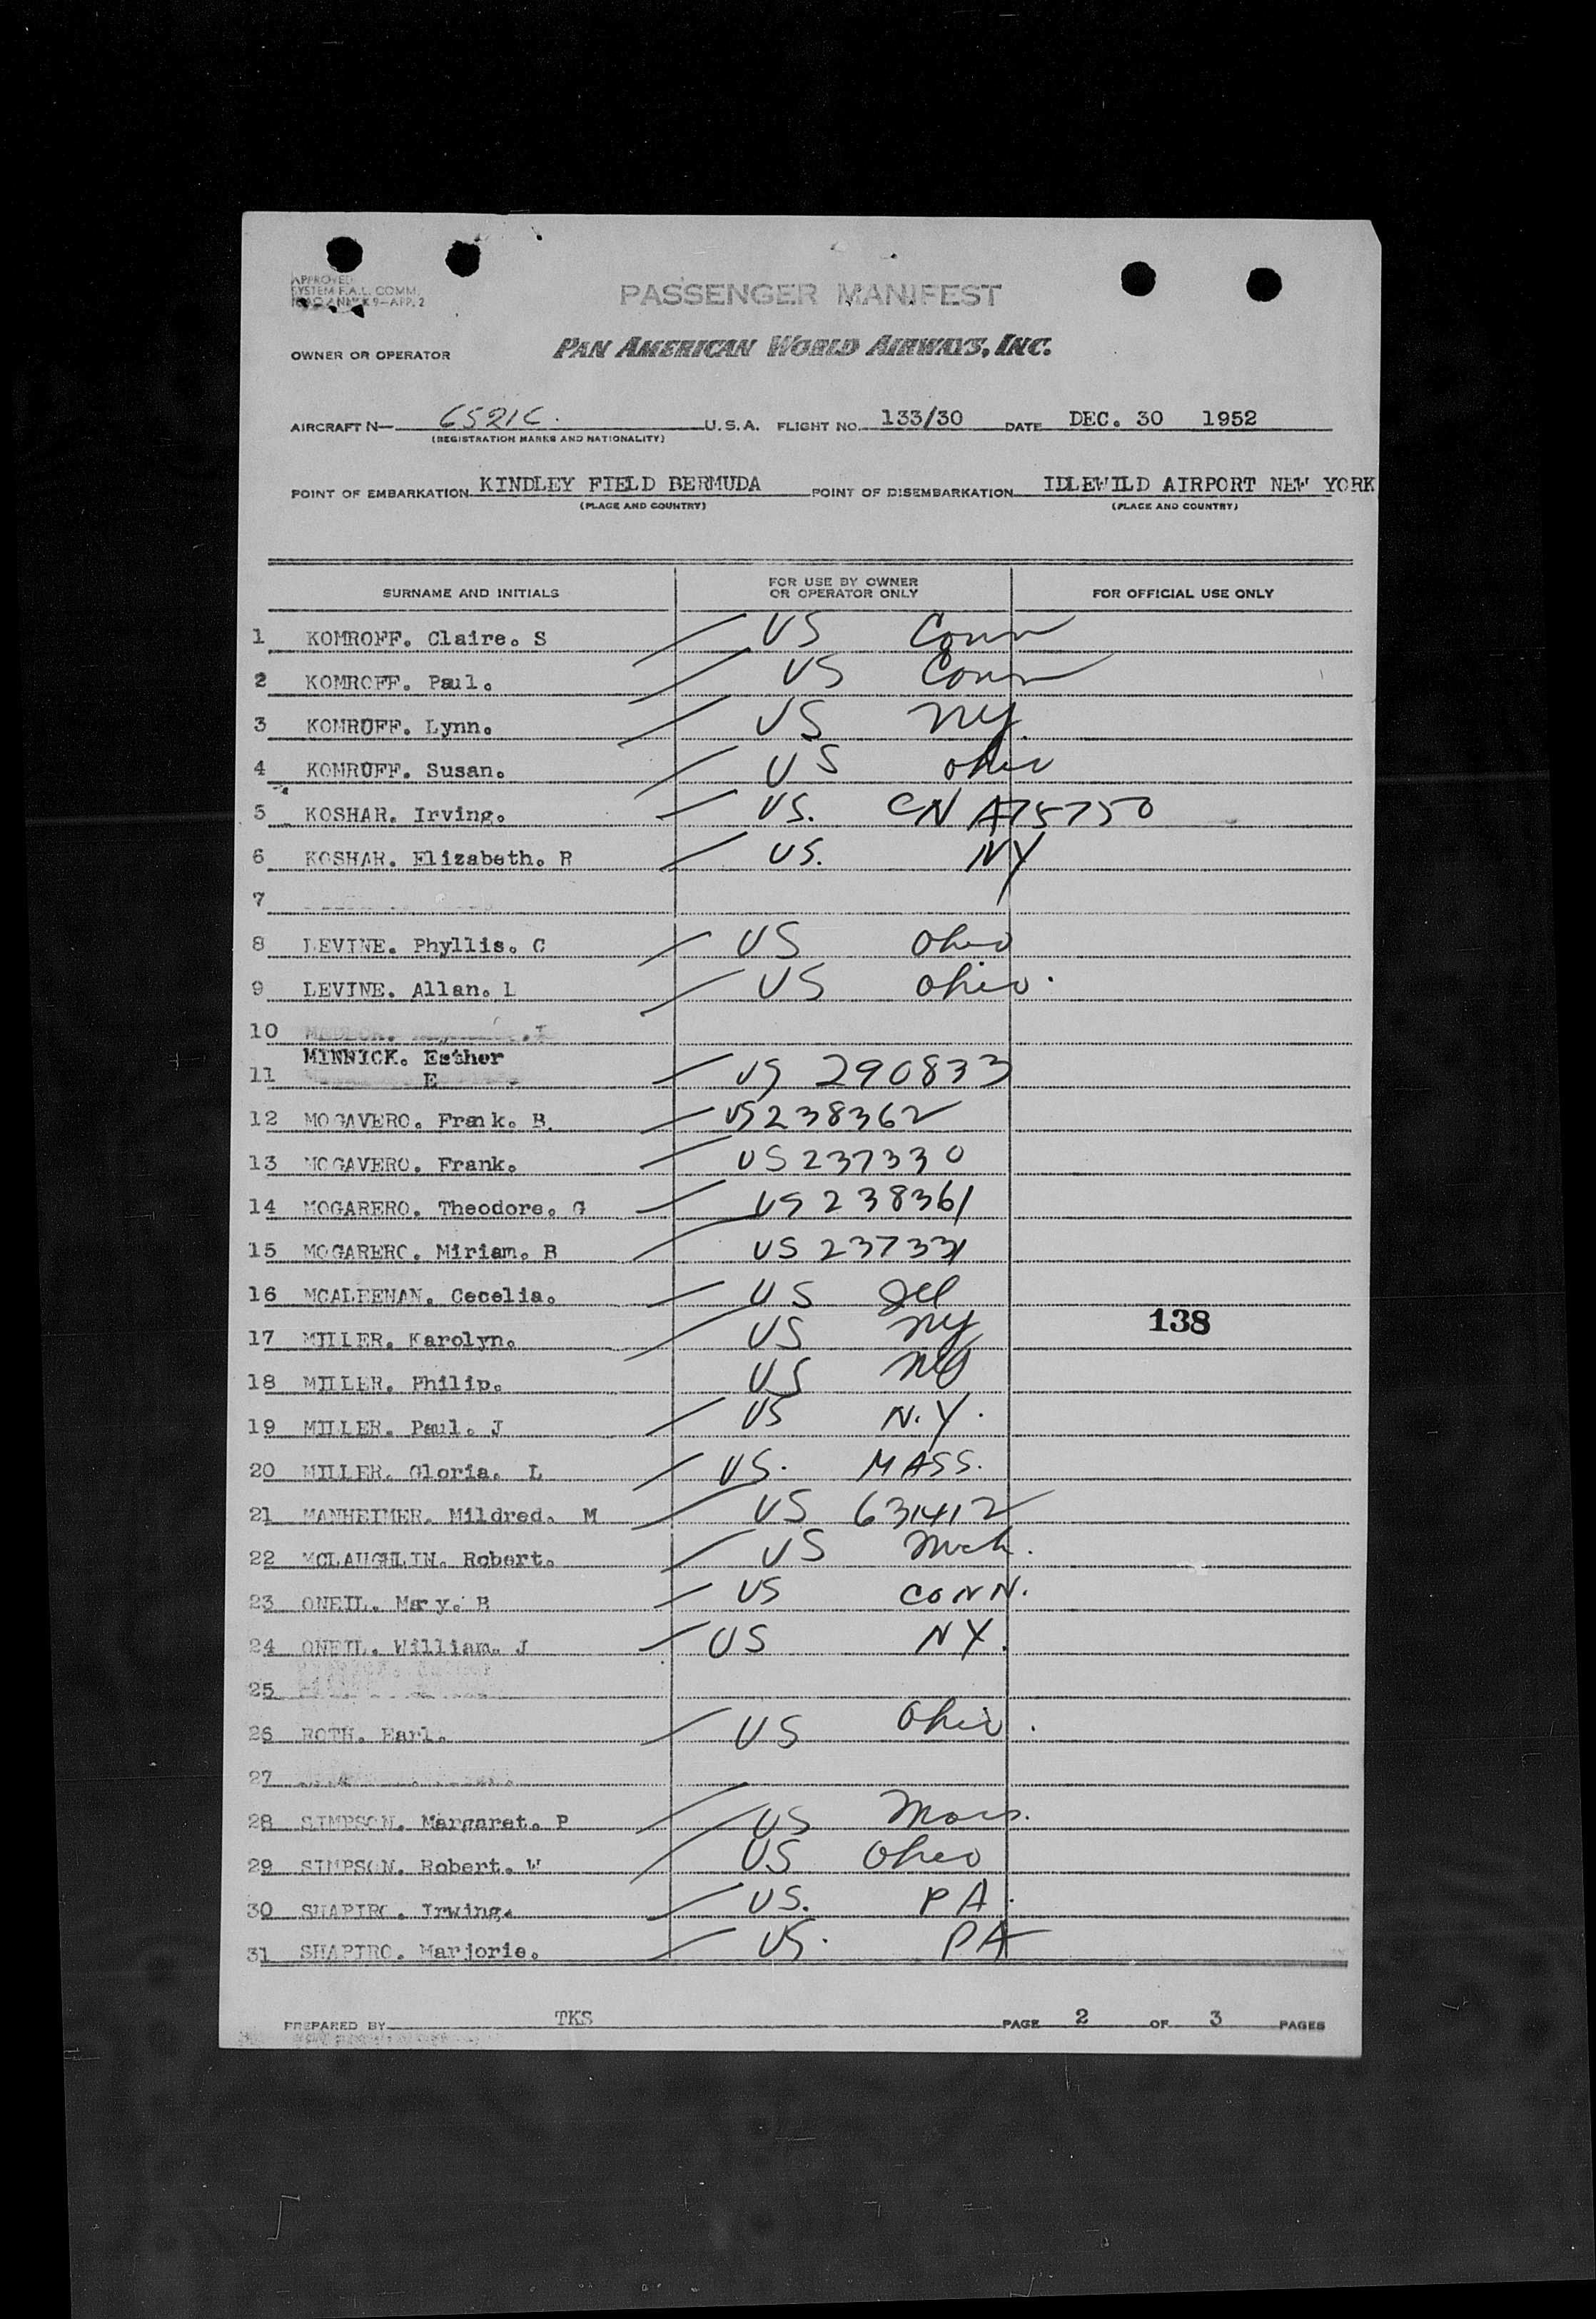 APPROVED
SYSTEM F.A.L. COMM.
ICAO ANNEX 9—APP. 2
PASSENGER MANIFEST
OWNER OR OPERATOR PAN AMERICAN WORLD AIRWAYS, INC.
AIRCRAFT N— 6521C. U.S.A. FLIGHT NO. 133/30 DATE DEC. 30 1952
(REGISTRATION MARKS AND NATIONALITY)
POINT OF EMBARKATION KINDLEY FIELD BERMUDA POINT OF DISEMBARKATION IDLEWILD AIRPORT NEW YORK
(PLACE AND COUNTRY) (PLACE AND COUNTRY)
SURNAME AND INITIALS FOR USE BY OWNER OR OPERATOR ONLY FOR OFFICIAL USE ONLY
1 KOMROFF. Claire. S US Conn
2 KOMROFF. Paul. US Conn
3 KOMROFF. Lynn. US NY.
4 KOMROFF. Susan. US Ohio
5 KOSHAR. Irving. US. CN A75750
6 KOSHAR. Elizabeth. R US. NY
7
8 LEVINE. Phyllis. C US Ohio
9 LEVINE. Allan. L US Ohio.
10
MINNICK. Esther
11 E US 290833
12 MOGAVERO. Frank. B. US 238362
13 MOGAVERO. Frank. US 237330
14 MOGARERO. Theodore. G US 238361
15 MOGARERO. Miriam. B US 237331
16 MCALEENAN. Cecelia. US Ill
17 MILLER. Karolyn. US NY 138
18 MILLER. Philip. US NY
19 MILLER. Paul. J US N.Y.
20 MILLER. Gloria. L US. MASS.
21 MANHEIMER. Mildred. M US 631412
22 MCLAUGHLIN. Robert. US Mich.
23 ONEIL. Mary. B US CONN.
24 ONEIL. William. J US NY.
25
26 ROTH. Earl. US Ohio.
27
28 SIMPSON. Margaret. P US Mass.
29 SIMPSON. Robert. W US Ohio
30 SHAPIRO. Irwing. US. PA.
31 SHAPIRO. Marjorie. US. PA
PREPARED BY TKS PAGE 2 OF 3 PAGES